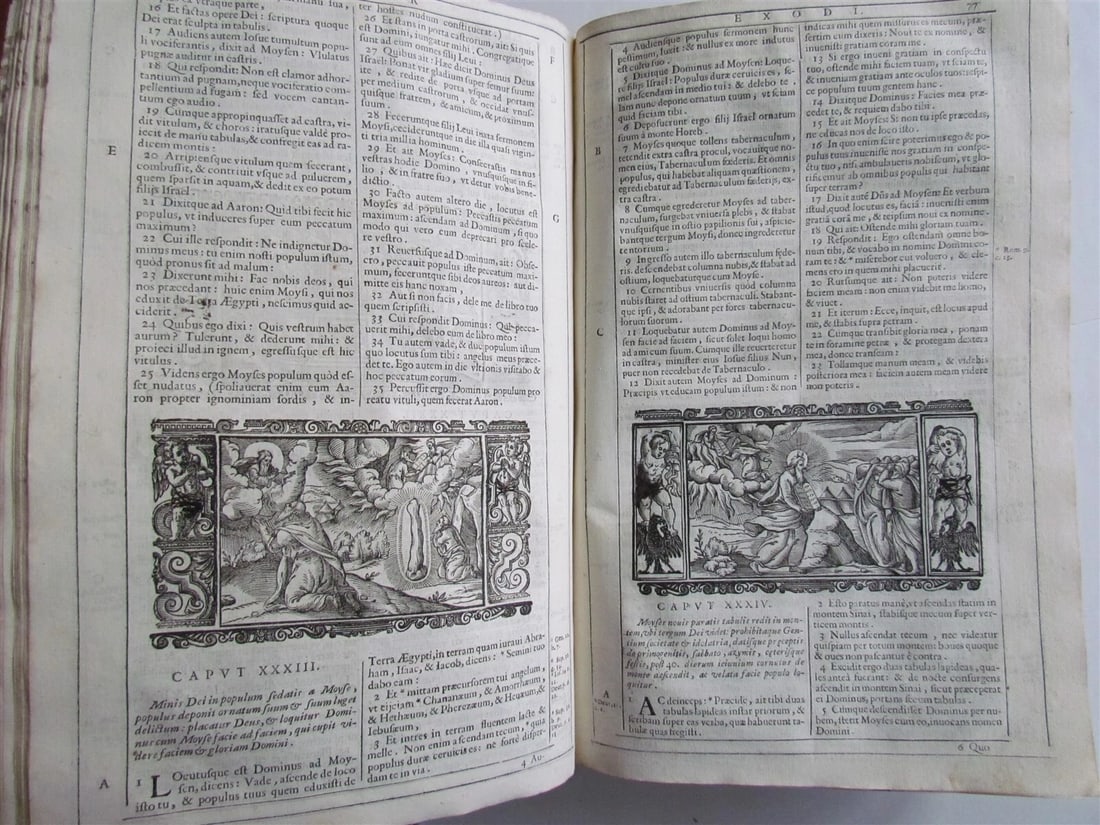 16 Et factas opere Dei: scriptura quoque
Dei erat sculpta in tabulis.
17 Audiens autem Iosue tumultum popu-
li vociferantis, dixit ad Moysen: Vlulatus
pugnæ auditur in castris.
18 Qui respondit: Non est clamor adhor-
tantium ad pugnam, neque vociferatio com-
pellentium ad fugam: sed vocem cantan-
tium ego audio.
19 Cumque appropinquasset ad castra, vi-
dit vitulum, & choros: iratusque valdè pro-
iecit de manu tabulas, & confregit eas ad ra-
dicem montis:
E
20 Arripiensque vitulum quem fecerant,
combussit, & contriuit vsque ad puluerem,
quem sparsit in aquam, & dedit ex eo potum
filijs Israel.
21 Dixitque ad Aaron: Quid tibi fecit hic
populus, vt induceres super eum peccatum
maximum?
22 Cui ille respondit: Ne indignetur Do-
minus meus: tu enim nosti populum istum,
quòd pronus sit ad malum:
23 Dixerunt mihi: Fac nobis deos, qui
nos præcedant: huic enim Moysi, qui nos
eduxit de Terra Ægypti, nescimus quid ac-
ciderit.
24 Quibus ego dixi: Quis vestrum habet
aurum? Tulerunt, & dederunt mihi: &
proieci illud in ignem, egressusque est hic
vitulus.
25 Videns ergo Moyses populum quòd es-
set nudatus, (spoliauerat enim eum Aa-
ron propter ignominiam sordis, & in-
ter hostes nudum constituerat.)
26 Et stans in porta castrorum, ait: Si quis
est Domini, iungatur mihi. Congregatique
sunt ad eum omnes filij Leui:
F
27 Quibus ait: Hæc dicit Dominus Deus
Israel: Ponat vir gladium super femur suum:
ite, & redite de porta vsque ad portam
per medium castrorum, & occidat vnus-
quisque fratrem, & amicum, & proximum
suum.
28 Feceruntque filij Leui iuxta sermonem
Moysi, cecideruntque in die illa quasi vigin-
ti tria millia hominum.
29 Et ait Moyses: Consecrastis manus
vestras hodie Domino, vnusquisque in fi-
lio, & in fratre suo, vt detur vobis bene-
dictio.
G
30 Facto autem altero die, locutus est
Moyses ad populum: Peccastis peccatum
maximum: ascendam ad Dominum, si quo
modo qui vero eum deprecari pro scele-
re vestro.
31 Reuersusque ad Dominum, ait: Obse-
cro, peccauit populus iste peccatum maxi-
mum, feceruntque sibi deos aureos: aut di-
mitte eis hanc noxam,
32 Aut si non facis, dele me de libro tuo
quem scripsisti.
33 Cui respondit Dominus: Qui pecca-
uerit mihi, delebo eum de libro meo:
34 Tu autem vade, & duc populum istum
quo locutus sum tibi: angelus meus præce-
det te. Ego autem in die vltionis visitabo &
hoc peccatum eorum.
35 Percussit ergo Dominus populum pro
reatu vituli, quem fecerat Aaron.
CAPVT XXXIII.
Minis Dei in populum sedatis a Moyse,
populus deponit ornatum suum & suum luget
delictum: placatur Deus, & loquitur Domi-
nus cum Moyse facie ad faciem, qui cupit vi-
dere faciem & gloriam Domini.
A
1 LOcutusque est Dominus ad Moy-
sen, dicens: Vade, ascende de loco
isto tu, & populus tuus quem eduxisti de
Terra Ægypti, in terram quam iuraui Abra-
ham, Isaac, & Iacob, dicens: * Semini tuo
dabo eam:
2 Et * mittam præcursorem tui angelum,
vt eijciam * Chananæum, & Amorrhæum,
& Hethæum, & Pherezæum, & Heuæum, &
Iebusæum,
3 Et intres in terram fluentem lacte &
melle. Non enim ascendam tecum, * quia
populus duræ ceruicis es: ne fortè disper-
dam te in via.
4 Au-
EXODI.
77
4 Audiensque populus sermonem hunc
pessimum, luxit: & nullus ex more indutus
est cultu suo.
5 Dixitque Dominus ad Moysen: Loque-
re filijs Israel: Populus duræ ceruicis es, se-
mel ascendam in medio tui: & delebo te.
Iam nunc depone ornatum tuum, vt sciam
quid faciam tibi.
6 Deposuerunt ergo filij Israel ornatum
suum à monte Horeb.
B
7 Moyses quoque tollens tabernaculum,
tetendit extra castra procul, vocauitque no-
men eius, Tabernaculum fœderis. Et omnis
populus, qui habebat aliquam quæstionem,
egrediebatur ad Tabernaculum fœderis, ex-
tra castra.
8 Cumque egrederetur Moyses ad taber-
naculum, surgebat vniuersa plebs, & stabat
vnusquisque in ostio papilionis sui, aspicie-
bantque tergum Moysi, donec ingrederetur
tentorium.
9 Ingresso autem illo tabernaculum fœde-
ris, descendebat columna nubis, & stabat ad
ostium, loquebaturque cum Moyse.
10 Cernentibus vniuersis quòd columna
nubis staret ad ostium tabernaculi. Stabant-
que ipsi, & adorabant per fores tabernacu-
lorum suorum.
C
11 Loquebatur autem Dominus ad Moy-
sen facie ad faciem, sicut solet loqui homo
ad amicum suum. Cumque ille reuerteretur
in castra, minister eius Iosue filius Nun,
puer non recedebat de Tabernaculo.
12 Dixit autem Moyses ad Dominum:
Præcipis vt educam populum istum: & non
indicas mihi quem missurus es mecum, præ-
sertim cum dixeris: Noui te ex nomine, &
inuenisti gratiam coram me.
13 Si ergo inueni gratiam in conspectu
tuo, ostende mihi faciem tuam, vt sciam te,
& inueniam gratiam ante oculos tuos: respi-
ce populum tuum gentem hanc.
14 Dixitque Dominus: Facies mea præ-
cedet te, & requiem dabo tibi.
15 Et ait Moyses: Si non tu ipse præcedas,
ne educas nos de loco isto.
16 In quo enim scire poterimus ego & po-
pulus tuus inuenisse nos gratiam in conspe-
ctu tuo, nisi ambulaueris nobiscum, vt glo-
rificemur ab omnibus populis qui habitant
super terram?
17 Dixit autē Dñs ad Moysen: Et verbum
istud, quod locutus es, faciā: inuenisti enim
gratiā corā me, & teipsum noui ex nomine.
18 Qui ait: Ostende mihi gloriam tuam.
19 Respondit: Ego ostendam omne bo-
num tibi, & vocabo in nomine Domini co-
ram te: & * miserebor cui voluero, & cle-
mens ero in quem mihi placuerit.
* Rom. 9.
c. 15.
20 Rursumque ait: Non poteris videre
faciem meam: non enim videbit me homo,
& viuet.
21 Et iterum: Ecce, inquit, est locus apud
me, & stabis supra petram.
22 Cumque transibit gloria mea, ponam
te in foramine petræ, & protegam dextera
mea, donec transeam:
23 Tollamque manum meam, & videbis
posteriora mea: faciem autem meam videre
non poteris.
CAPVT XXXIV.
Moyses nouis paratis tabulis redit in mon-
tem, vbi tergum Dei videt: prohibitaque Gen-
tium societate & idolatria, datisque præceptis
de primogenitis, sabbato, azymis, ceterisque
festis, post 40. dierum ieiunium cornutus de
monte descendit, ac velata facie populo lo-
quitur.
A
1 AC deinceps: * Præcide, ait tibi duas
tabulas lapideas instar priorum, &
scribam super eas verba, quæ habuerunt ta-
bulæ quas fregisti.
2 Esto paratus manè, vt ascendas statim in
montem Sinai, stabisque mecum super ver-
ticem montis.
3 Nullus ascendat tecum, nec videatur
quispiam per totum montem: boues quoque
& oues non pascantur è contra.
4 Excidit ergo duas tabulas lapideas, qua-
les antea fuerant: & de nocte consurgens
ascendit in montem Sinai, sicut præceperat
ei Dominus, portans secum tabulas.
5 Cumque descendisset Dominus per nu-
bem, stetit Moyses cum eo, inuocans nomen
Domini.
6 Quo